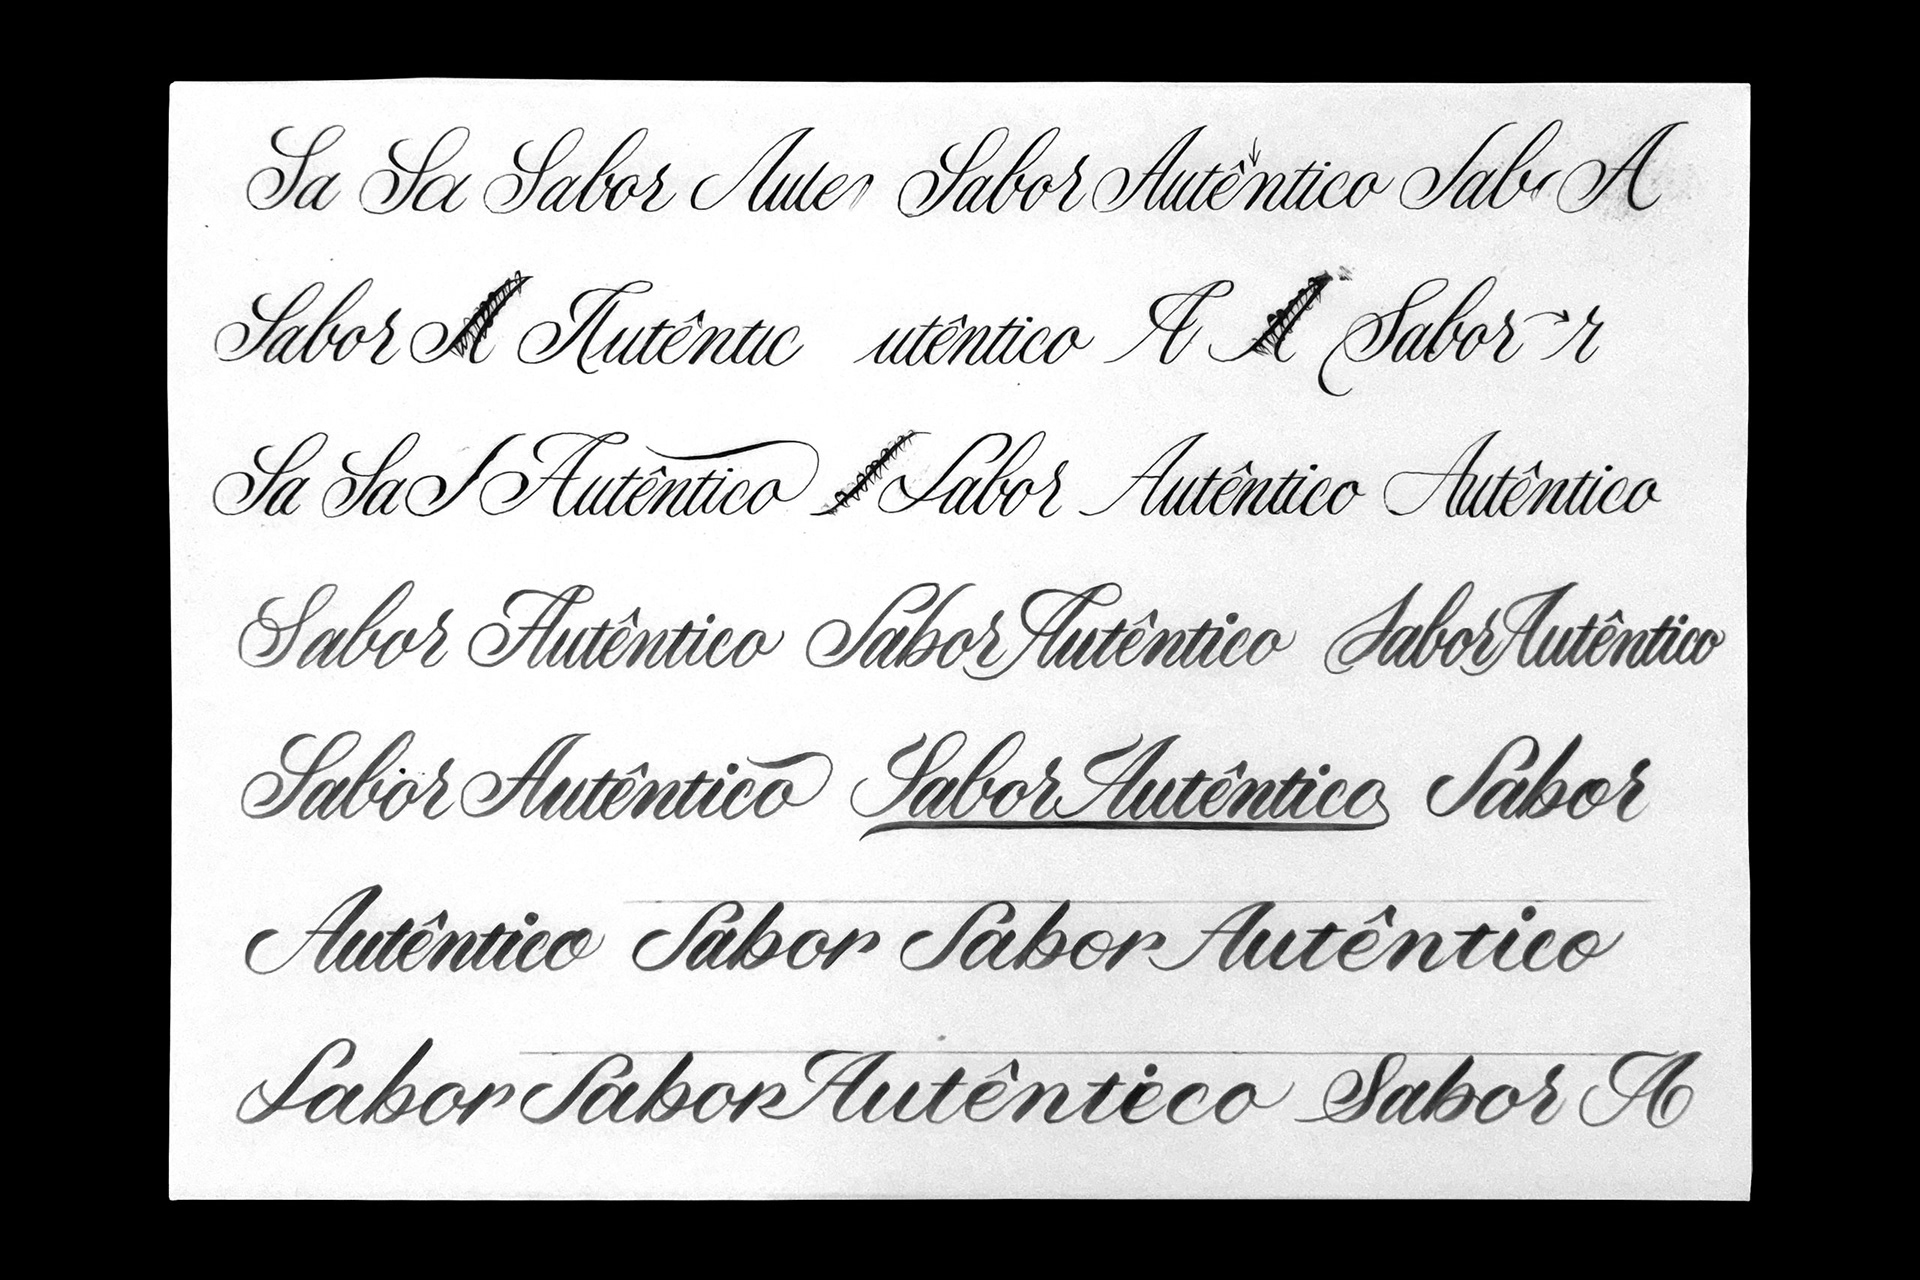 Sa Sa Sabor Aute Sabor Autêntico Sab A
Sabor A Autêntic utêntico A A Sabor r
Sa Sa S Autêntico Sabor Autêntico Autêntico
Sabor Autêntico Sabor Autêntico Sabor Autêntico
Sabor Autêntico Sabor Autêntico Sabor
Autêntico Sabor Sabor Autêntico
Sabor Sabor Autêntico Sabor A